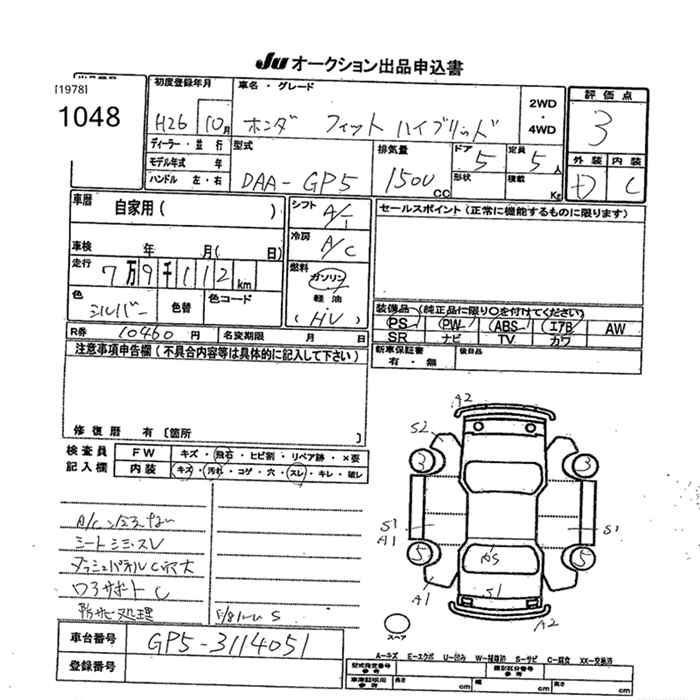 Ju オークション出品申込書
[1978]
1048
初度登録年月
車名・グレード
H26 10月
ホンダ フィット ハイブリッド
2WD
・
4WD
評価点
3
外装 内装
D C
ディーラー・並行
モデル年式 年
ハンドル 左・右
型式
DAA-GP5
排気量
1500 CC
ドア 5
形状
定員 5人
積載 Kg
車歴 自家用( )
シフト A/T
セールスポイント(正常に機能するものに限ります)
車検 年 月( 日)
冷房 A/C
走行 7万9千112km
燃料 ガソリン
軽油
(HV)
色 シルバー
色替
色コード
装備品(純正品に限り○を付けてください)
PS PW ABS エアB AW
SR ナビ TV カワ
R券 10460円 名変期限 月 日
新車保証書
有・無
後日品
注意事項申告欄(不具合内容等は具体的に記入して下さい)
修復歴 有[箇所 ]
検査員
記入欄
FW キズ・飛石・ヒビ割・リペア跡・×要
内装 キズ・汚れ・コゲ・穴・スレ・キレ・破レ
シートシミ・スレ
防サビ処理
A2
S2
3 3
S1
A1
S1
5 5
AS
A1
S1
A2
スペア
車台番号 GP5-3114051
登録番号
A-キズ E-エクボ U-凹み W-補修跡 S-サビ C-腐食 XX-交換済
型式指定番号
参考
類別区分番号
参考
車庫証明用
参考
長さ cm
幅 cm
高さ cm